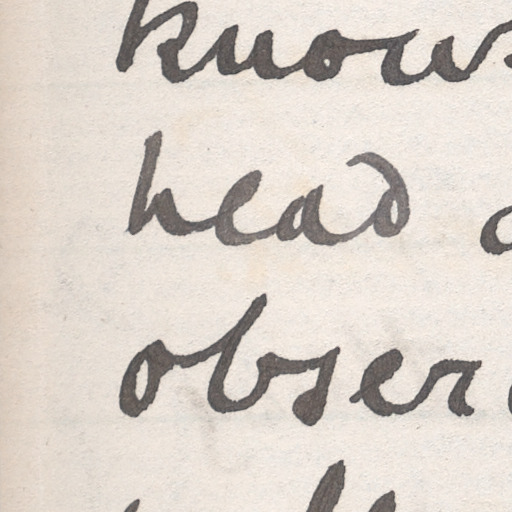 knows
head
obser